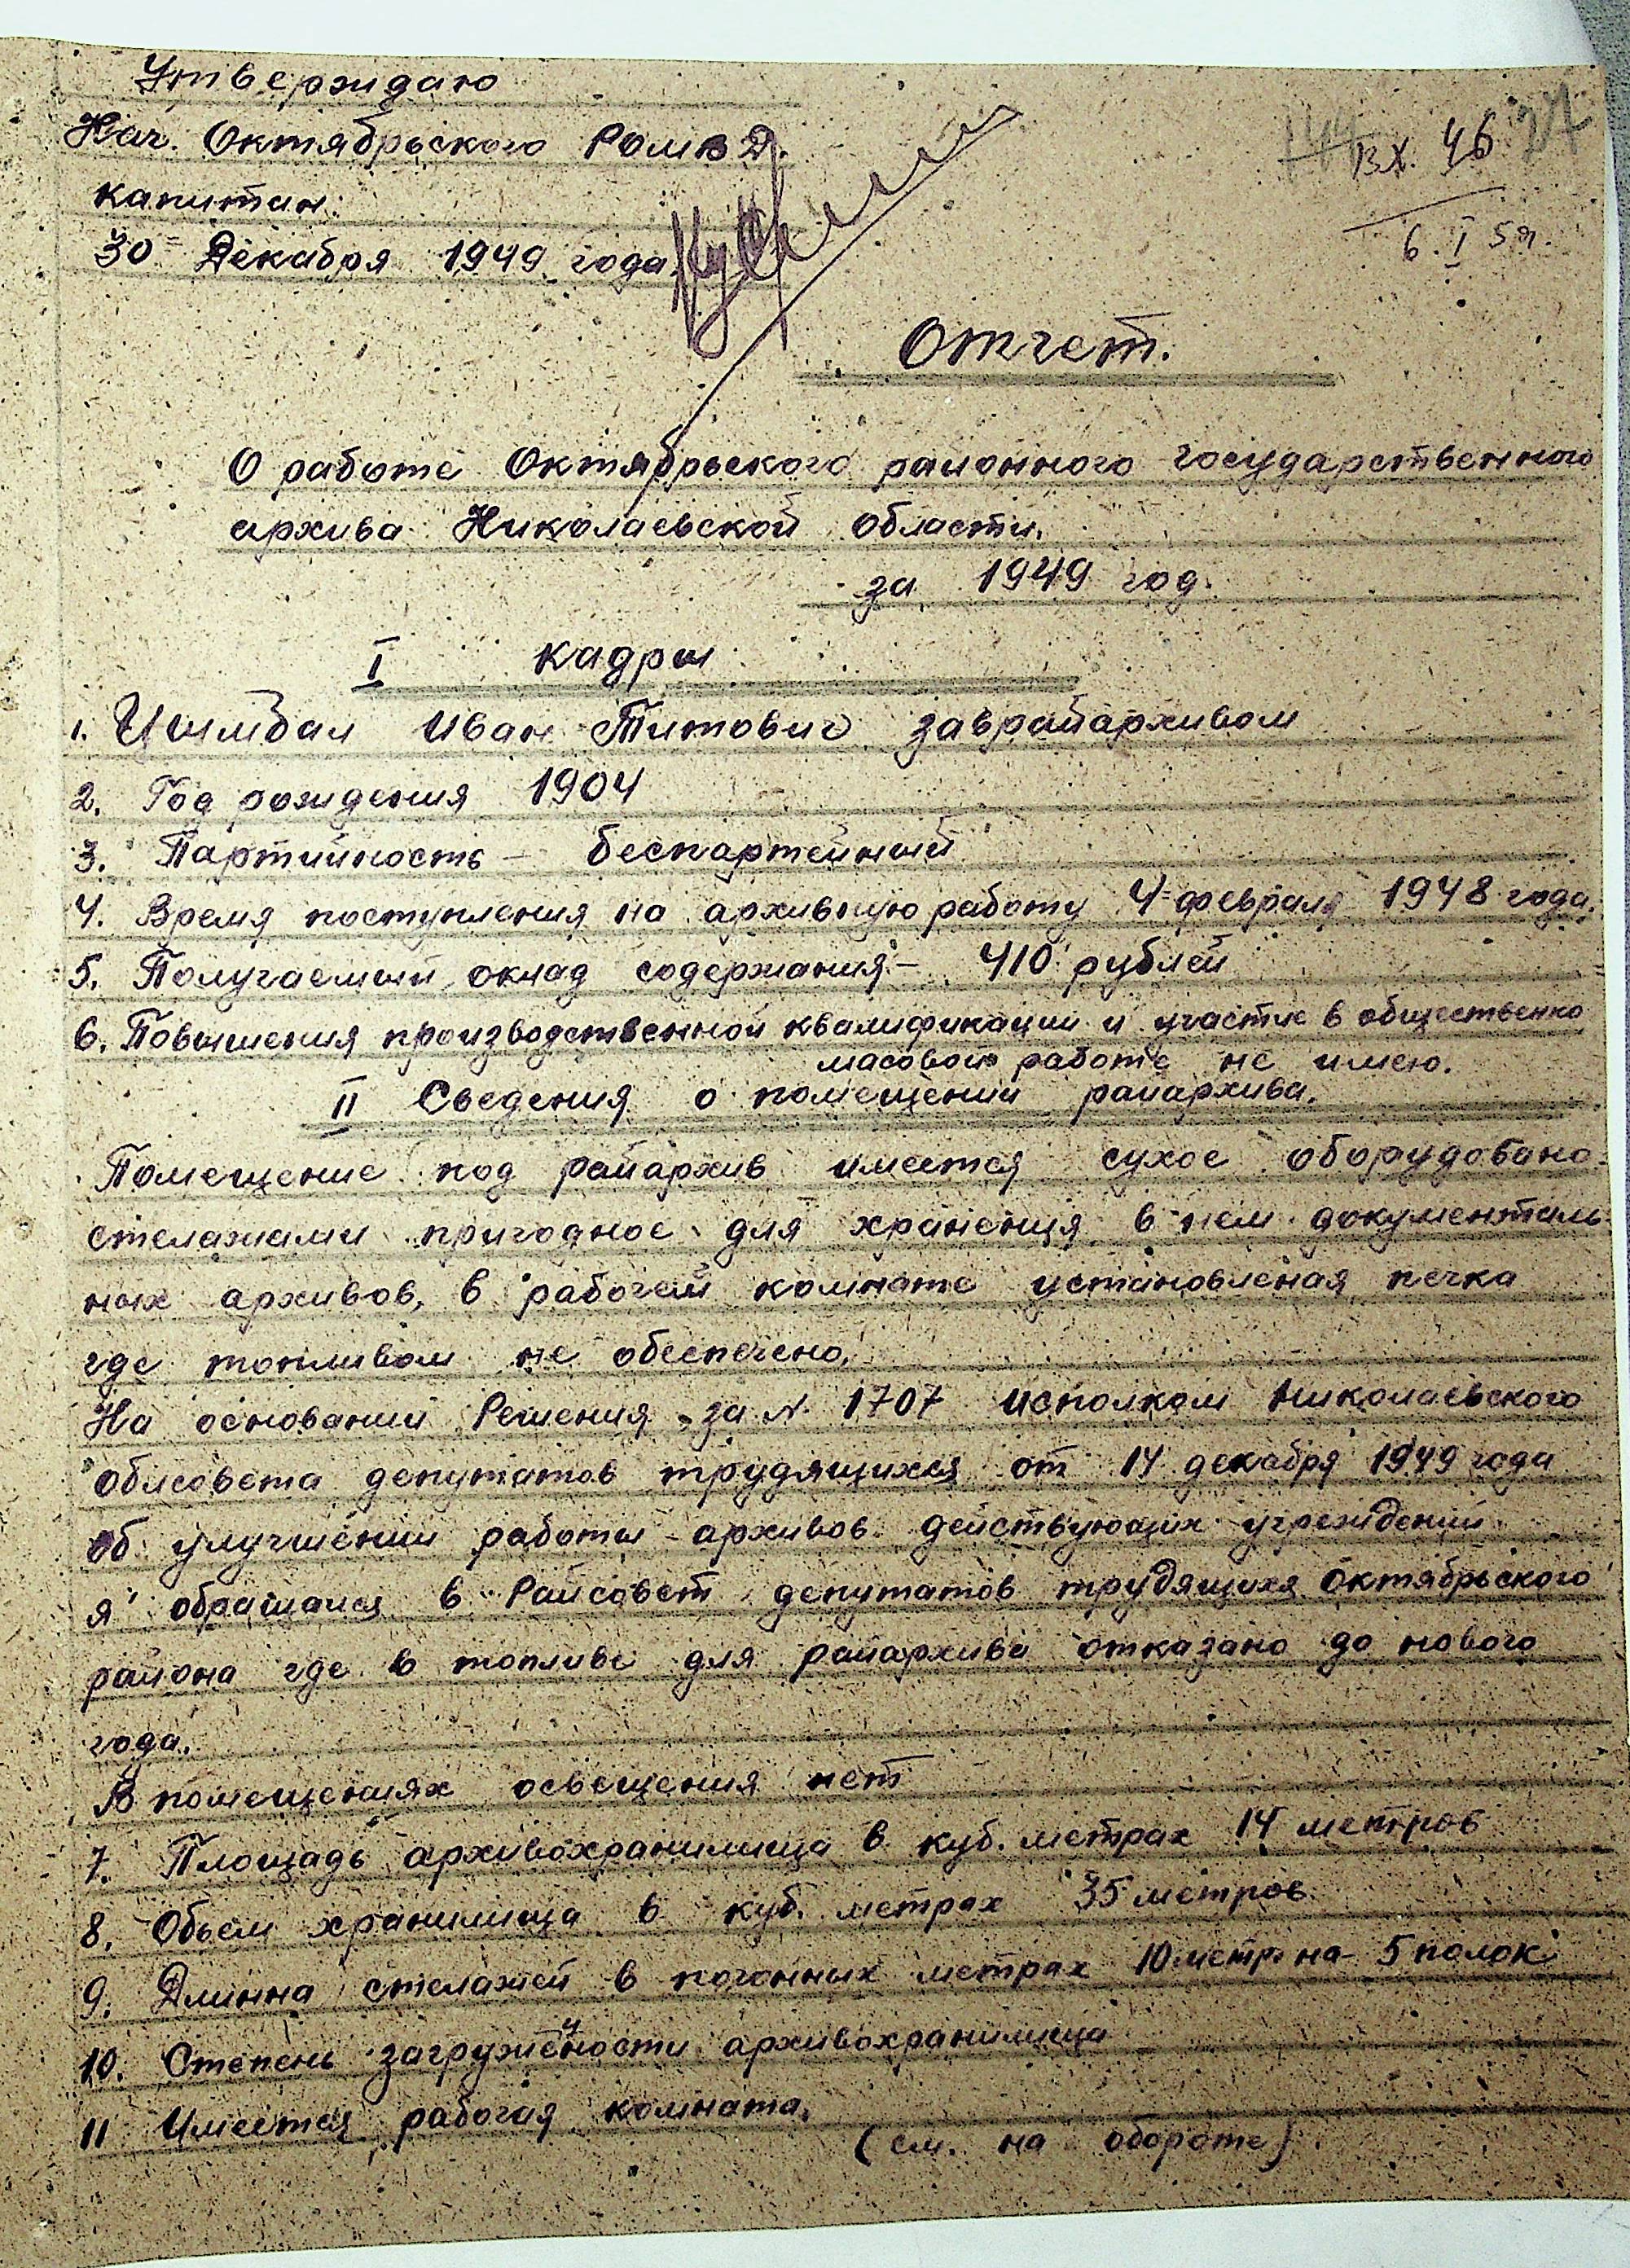 Утверждаю
Нач. Октябрьского РОМВД.
капитан:
30 Декабря 1949 года
144 27
вх. 46
6. I 50 г.
Отчет.
О работе Октябрьского районного государственного
архива Николаевской области.
за 1949 год.
I кадры
1. Цымбал Иван Титович заврайархивом
2. Год рождения 1904
3. Партийность – беспартейный
4. Время поступления на архивную работу 4 февраля 1948 года.
5. Получаемый оклад содержания – 410 рублей
6. Повышения производственной квалификации и участие в общественно
масовой работе не имею.
II Сведения о помещении райархива.
Помещение под райархив имеется сухое оборудовано
стелажами пригодное для хранения в нем документаль
ных архивов, в рабочей комнате установленая печка
где топливом не обеспечено.
На основании Решения за № 1707 исполком Николаевского
облсовета депутатов трудящихся от 14 декабря 1949 года
об улучшении работы архивов действующих учреждений
я обращался в Райсовет депутатов трудящихся Октябрьского
района где в топливе для райархива отказано до нового
года.
В помещениях освещения нет
7. Площадь архивохранилища в куб. метрах 14 метров
8. Обьем хранилища в куб. метрах 35 метров
9. Длинна стелажей в погонных метрах 10 метр. на 5 полок
10. Степень загружености архивохранилища
11 Имеется рабочая комната.
(см. на обороте)